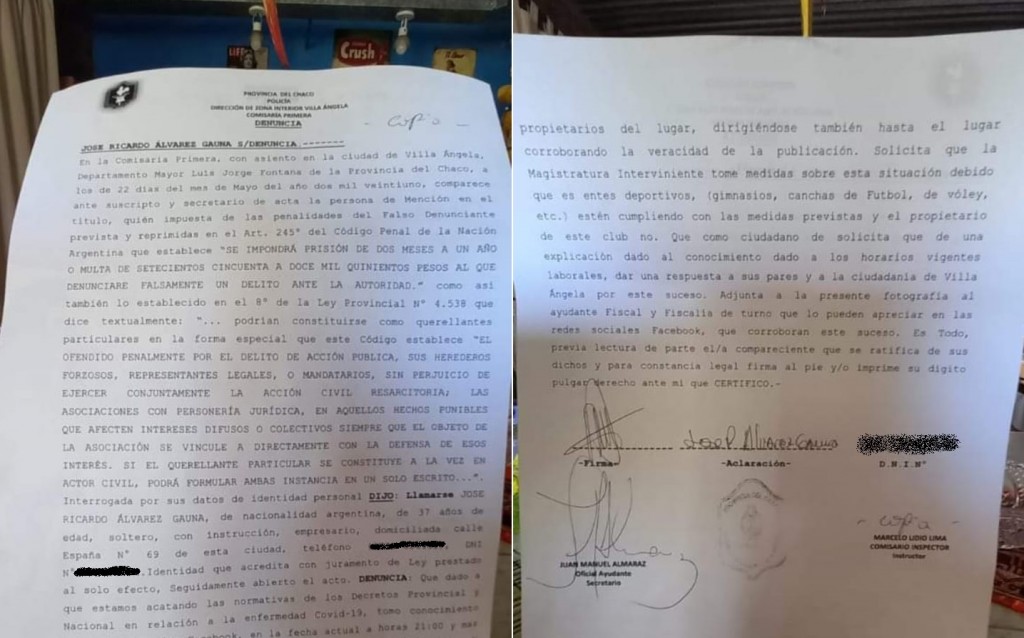 LIFE
Crush
PROVINCIA DEL CHACO
POLICÍA
DIRECCIÓN DE ZONA INTERIOR VILLA ÁNGELA
COMISARÍA PRIMERA
DENUNCIA
- copia -
JOSE RICARDO ÁLVAREZ GAUNA S/DENUNCIA.-------
En la Comisaría Primera, con asiento en la ciudad de Villa Ángela,
Departamento Mayor Luis Jorge Fontana de la Provincia del Chaco, a
los de 22 días del mes de Mayo del año dos mil veintiuno, comparece
ante suscripto y secretario de acta la persona de Mención en el
título, quién impuesta de las penalidades del Falso Denunciante
prevista y reprimidas en el Art. 245° del Código Penal de la Nación
Argentina que establece "SE IMPONDRÁ PRISIÓN DE DOS MESES A UN AÑO
O MULTA DE SETECIENTOS CINCUENTA A DOCE MIL QUINIENTOS PESOS AL QUE
DENUNCIARE FALSAMENTE UN DELITO ANTE LA AUTORIDAD." como así
también lo establecido en el 8° de la Ley Provincial N° 4.538 que
dice textualmente: "... podrían constituirse como querellantes
particulares en la forma especial que este Código establece "EL
OFENDIDO PENALMENTE POR EL DELITO DE ACCIÓN PUBLICA, SUS HEREDEROS
FORZOSOS, REPRESENTANTES LEGALES, O MANDATARIOS, SIN PERJUICIO DE
EJERCER CONJUNTAMENTE LA ACCIÓN CIVIL RESARCITORIA; LAS
ASOCIACIONES CON PERSONERÍA JURÍDICA, EN AQUELLOS HECHOS PUNIBLES
QUE AFECTEN INTERESES DIFUSOS O COLECTIVOS SIEMPRE QUE EL OBJETO DE
LA ASOCIACIÓN SE VINCULE A DIRECTAMENTE CON LA DEFENSA DE ESOS
INTERÉS. SI EL QUERELLANTE PARTICULAR SE CONSTITUYE A LA VEZ EN
ACTOR CIVIL, PODRÁ FORMULAR AMBAS INSTANCIA EN UN SOLO ESCRITO...".
Interrogada por sus datos de identidad personal DIJO: Llamarse JOSE
RICARDO ÁLVAREZ GAUNA, de nacionalidad argentina, de 37 años de
edad, soltero, con instrucción, empresario, domiciliada calle
España N° 69 de esta ciudad, teléfono , DNI
N° .Identidad que acredita con juramento de Ley prestado
al solo efecto, Seguidamente abierto el acto. DENUNCIA: Que dado a
que estamos acatando las normativas de los Decretos Provincial y
Nacional en relación a la enfermedad Covid-19, tomo conocimiento
Facebook, en la fecha actual a horas 21:00 y
propietarios del lugar, dirigiéndose también hasta el lugar
corroborando la veracidad de la publicación. Solicita que la
Magistratura Interviniente tome medidas sobre esta situación debido
que es entes deportivos, (gimnasios, canchas de Futbol, de vóley,
etc.) estén cumpliendo con las medidas previstas y el propietario
de este club no. Que como ciudadano de solicita que de una
explicación dado al conocimiento dado a los horarios vigentes
laborales, dar una respuesta a sus pares y a la ciudadanía de Villa
Ángela por este suceso. Adjunta a la presente fotografía al
ayudante Fiscal y Fiscalía de turno que lo pueden apreciar en las
redes sociales Facebook, que corroboran este suceso. Es Todo,
previa lectura de parte el/a compareciente que se ratifica de sus
dichos y para constancia legal firma al pie y/o imprime su dígito
pulgar derecho ante mi que CERTIFICO.-
Jose R Alvarez Gauna
-Firma- -Aclaración- D.N.I.N°
- copia -
JUAN MANUEL ALMARAZ
Oficial Ayudante
Secretario
MARCELO UDIO LIMA
COMISARIO INSPECTOR
Instructor